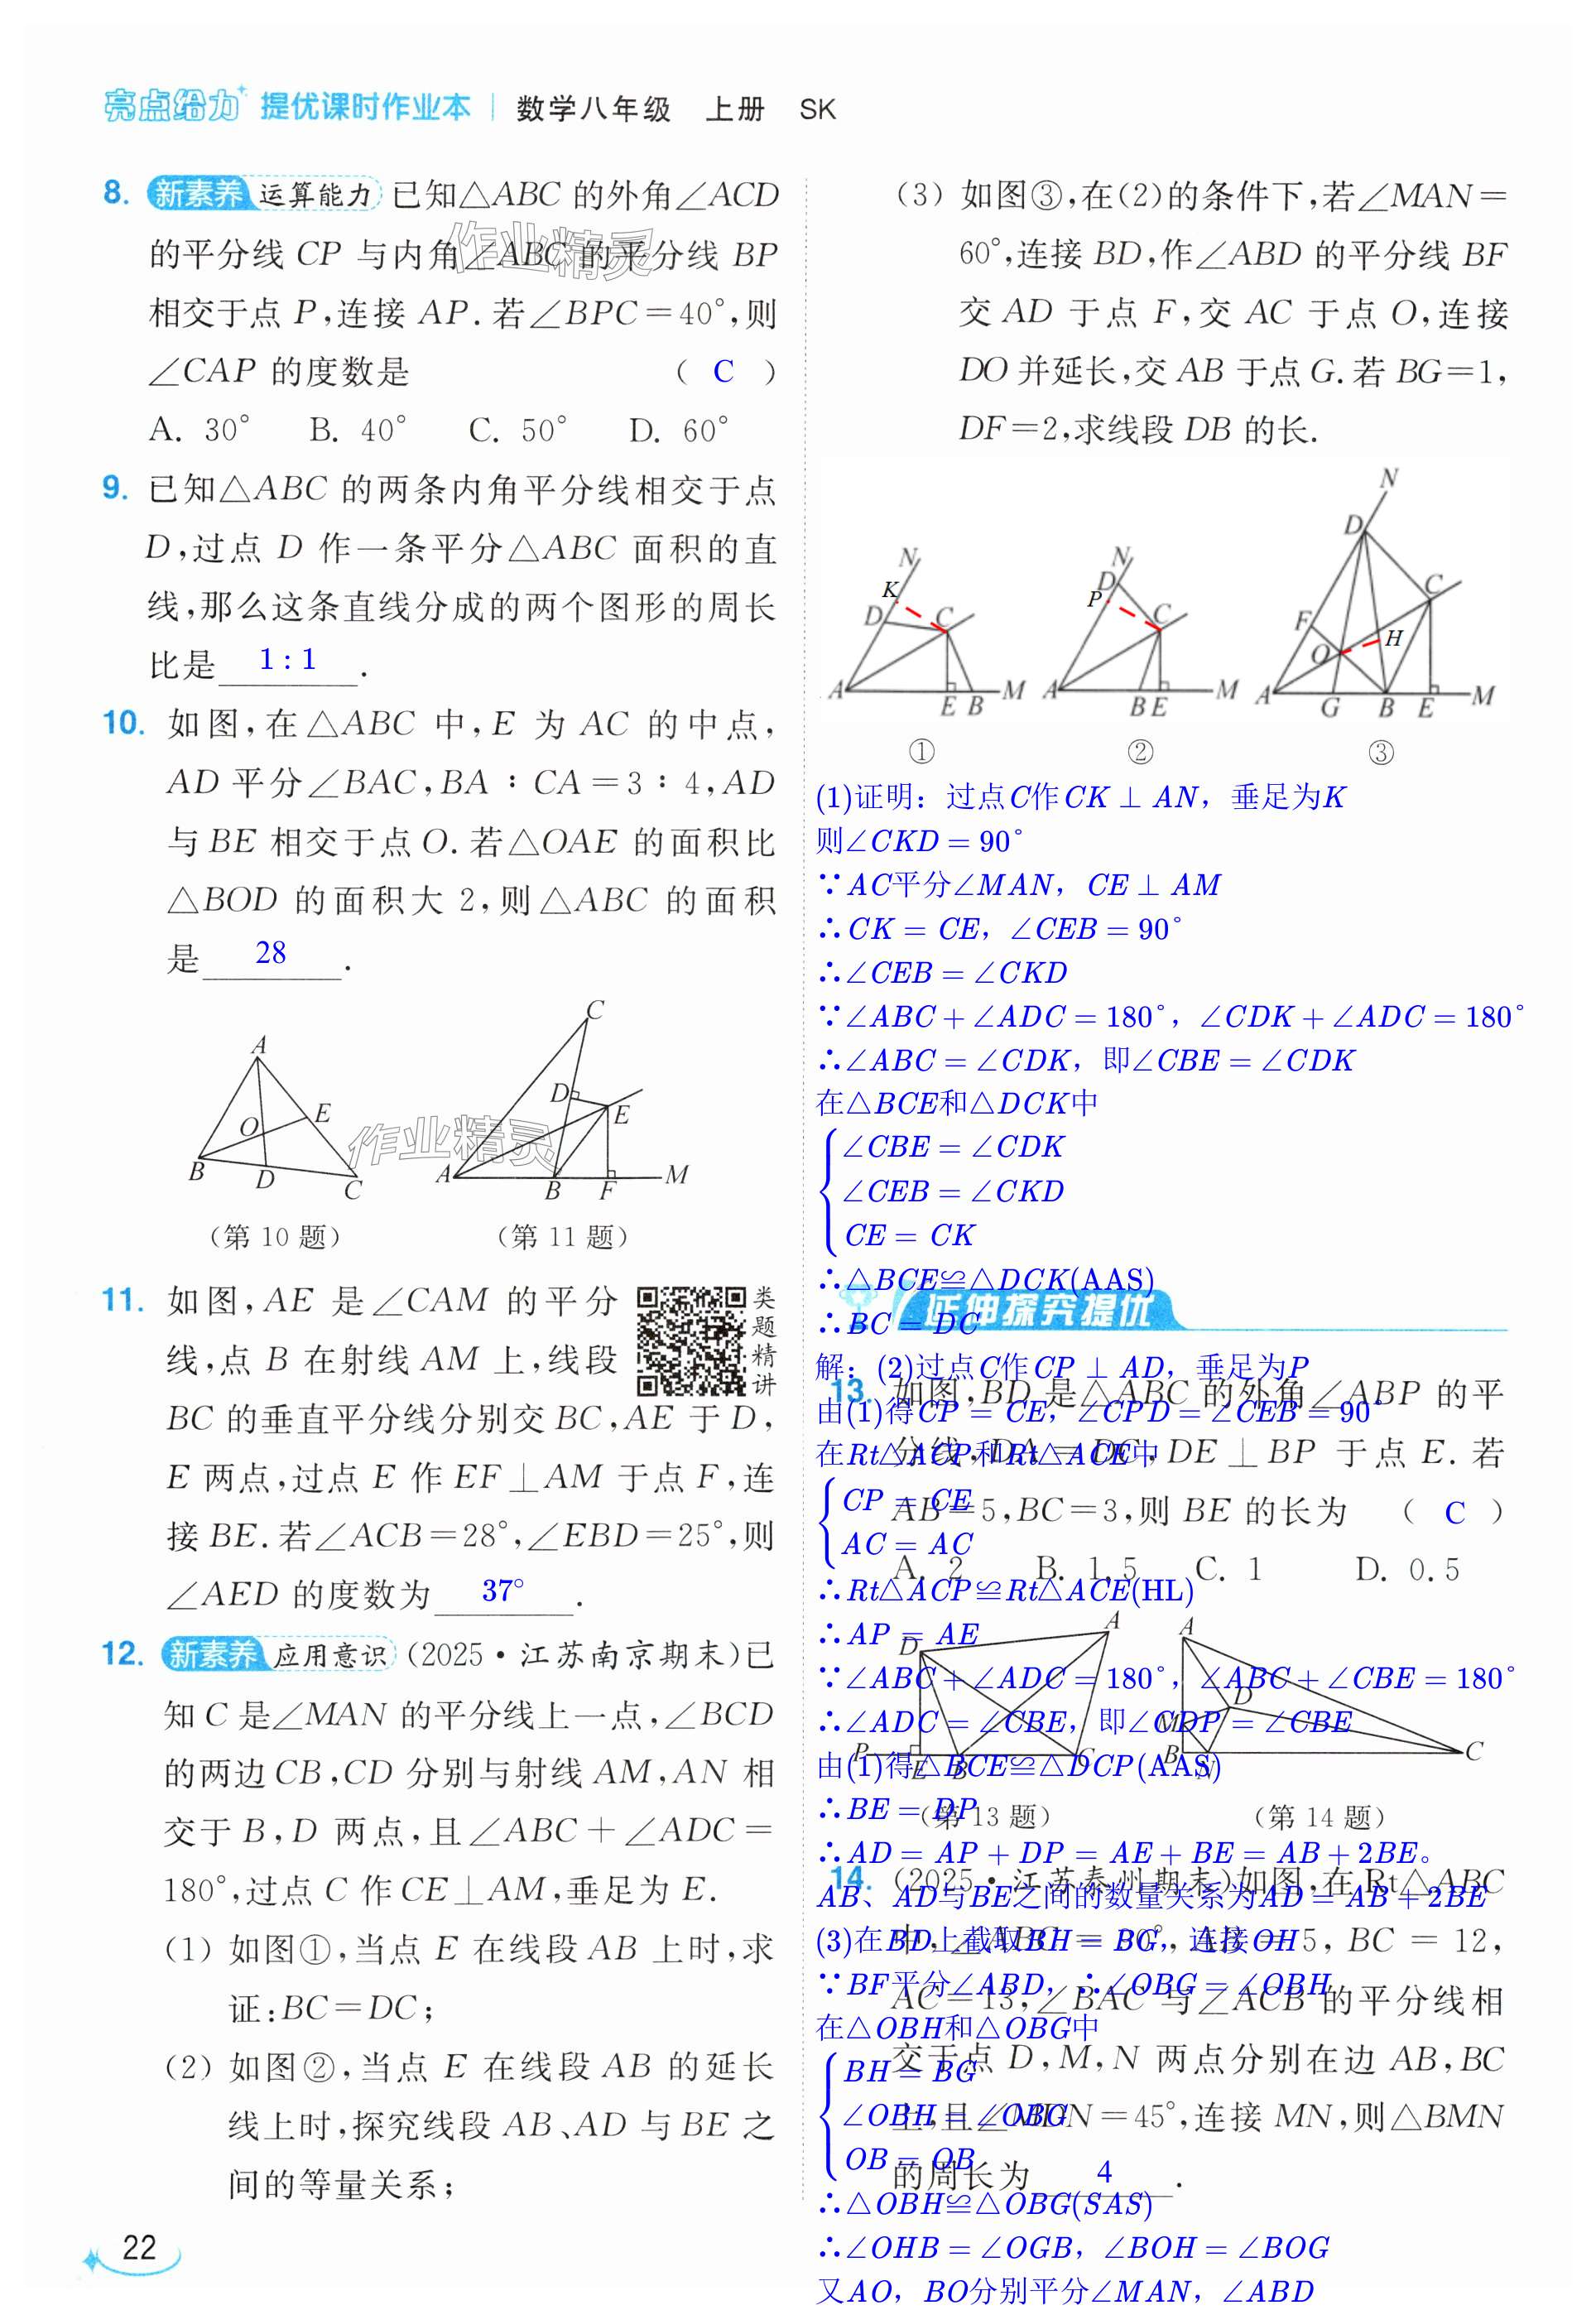 亮点给力 提优课时作业本 | 数学八年级 上册 SK
8. 新素养 运算能力 已知△ABC 的外角∠ACD
的平分线 CP 与内角∠ABC 的平分线 BP
相交于点 P,连接 AP. 若∠BPC=40°,则
∠CAP 的度数是 ( C )
A. 30° B. 40° C. 50° D. 60°
9. 已知△ABC 的两条内角平分线相交于点
D,过点 D 作一条平分△ABC 面积的直
线,那么这条直线分成的两个图形的周长
比是 1:1 .
10. 如图,在△ABC 中,E 为 AC 的中点,
AD 平分∠BAC,BA:CA=3:4,AD
与 BE 相交于点 O. 若△OAE 的面积比
△BOD 的面积大 2,则△ABC 的面积
是 28 .
A
O
E
B
D
C
(第 10 题)
C
D
E
A
B
F
M
(第 11 题)
作业精灵
作业精灵
11. 如图,AE 是∠CAM 的平分
线,点 B 在射线 AM 上,线段
BC 的垂直平分线分别交 BC,AE 于 D,
E 两点,过点 E 作 EF⊥AM 于点 F,连
接 BE. 若∠ACB=28°,∠EBD=25°,则
∠AED 的度数为 37° .
类题精讲
12. 新素养 应用意识 (2025·江苏南京期末)已
知 C 是∠MAN 的平分线上一点,∠BCD
的两边 CB,CD 分别与射线 AM,AN 相
交于 B,D 两点,且∠ABC+∠ADC=
180°,过点 C 作 CE⊥AM,垂足为 E.
(1) 如图①,当点 E 在线段 AB 上时,求
证:BC=DC;
(2) 如图②,当点 E 在线段 AB 的延长
线上时,探究线段 AB、AD 与 BE 之
间的等量关系;
22
(3) 如图③,在(2)的条件下,若∠MAN=
60°,连接 BD,作∠ABD 的平分线 BF
交 AD 于点 F,交 AC 于点 O,连接
DO 并延长,交 AB 于点 G. 若 BG=1,
DF=2,求线段 DB 的长.
N K D C A E B M
①
N D P C A B E M
②
N D C F H O A G B E M
③
(1)证明：过点C作CK⊥AN，垂足为K
则∠CKD=90°
∵AC平分∠MAN，CE⊥AM
∴CK=CE，∠CEB=90°
∴∠CEB=∠CKD
∵∠ABC+∠ADC=180°，∠CDK+∠ADC=180°
∴∠ABC=∠CDK，即∠CBE=∠CDK
在△BCE和△DCK中
∠CBE=∠CDK
∠CEB=∠CKD
CE=CK
∴△BCE≌△DCK(AAS)
延伸探究提优
∴BC=DC
解：(2)过点C作CP⊥AD，垂足为P
13. 如图,BD 是△ABC 的外角∠ABP 的平
由(1)得CP=CE，∠CPD=∠CEB=90°
分线,DA=DC,DE⊥BP 于点 E. 若
在Rt△ACP和Rt△ACE中
CP=CE
AB=5,BC=3,则 BE 的长为 ( C )
AC=AC
A. 2 B. 1.5 C. 1 D. 0.5
∴Rt△ACP≌Rt△ACE(HL)
∴AP=AE
D A P E B C
(第 13 题)
A D M B N C
(第 14 题)
∵∠ABC+∠ADC=180°，∠ABC+∠CBE=180°
∴∠ADC=∠CBE，即∠CDP=∠CBE
由(1)得△BCE≌△DCP(AAS)
∴BE=DP
∴AD=AP+DP=AE+BE=AB+2BE。
14. (2025·江苏泰州期末)如图,在 Rt△ABC
AB、AD与BE之间的数量关系为AD=AB+2BE
中,∠ABC=90°,AB=5, BC=12,
(3)在BD上截取BH=BG，连接OH
∵BF平分∠ABD，∴∠OBG=∠OBH
AC=13,∠BAC 与∠ACB 的平分线相
在△OBH和△OBG中
交于点 D,M,N 两点分别在边 AB,BC
BH=BG
∠OBH=∠OBG
上,且∠MDN=45°,连接 MN,则△BMN
OB=OB
的周长为 4 .
∴△OBH≌△OBG(SAS)
∴∠OHB=∠OGB，∠BOH=∠BOG
又AO，BO分别平分∠MAN，∠ABD